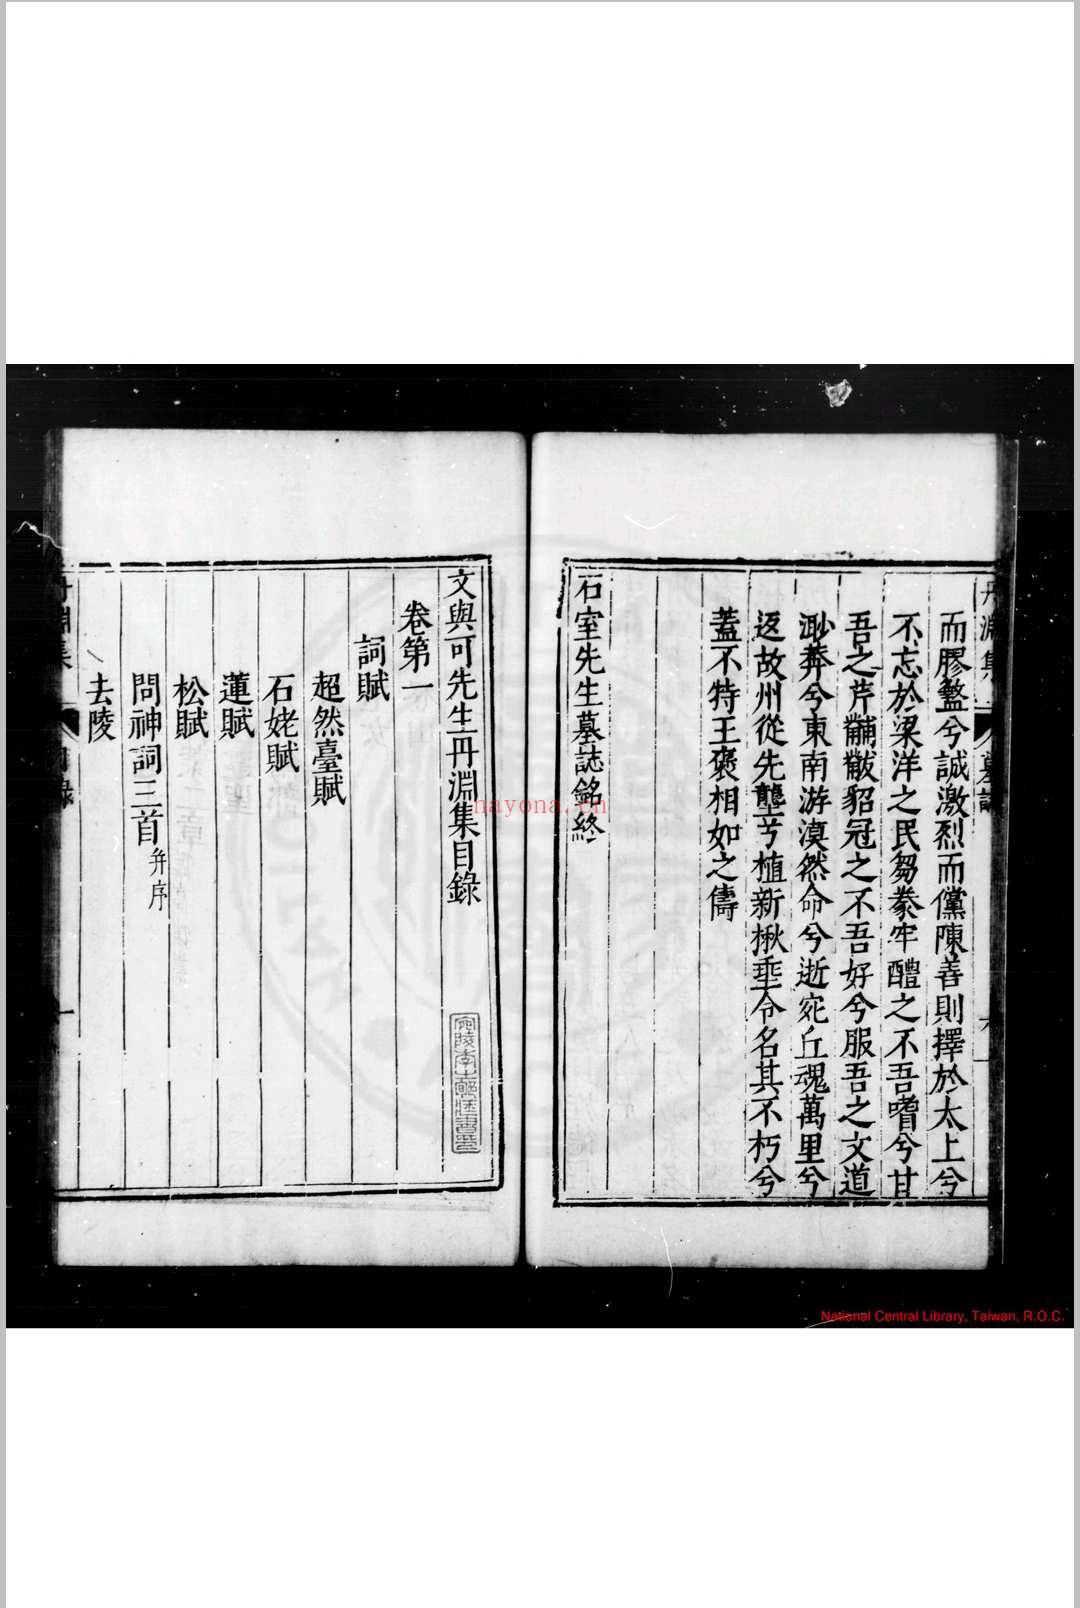 而膠盭兮誠激烈而儻陳善則擇於太上兮
不忘於梁洋之民芻豢牢醴之不吾嗜兮甘
吾之芹黼黻貂冠之不吾好兮服吾之文道
渺莽兮東南游漠然命兮逝宛丘魂萬里兮
返故州從先壟兮植新楸垂令名其不朽兮
蓋不特王褒相如之儔
石室先生墓誌銘終
文與可先生丹淵集目錄
卷第一
詞賦
超然臺賦
石姥賦
蓮賦
松賦
問神詞三首并序
去陵
丹淵集
一
nayona.cn
National Central Library, Taiwan, R.O.C.